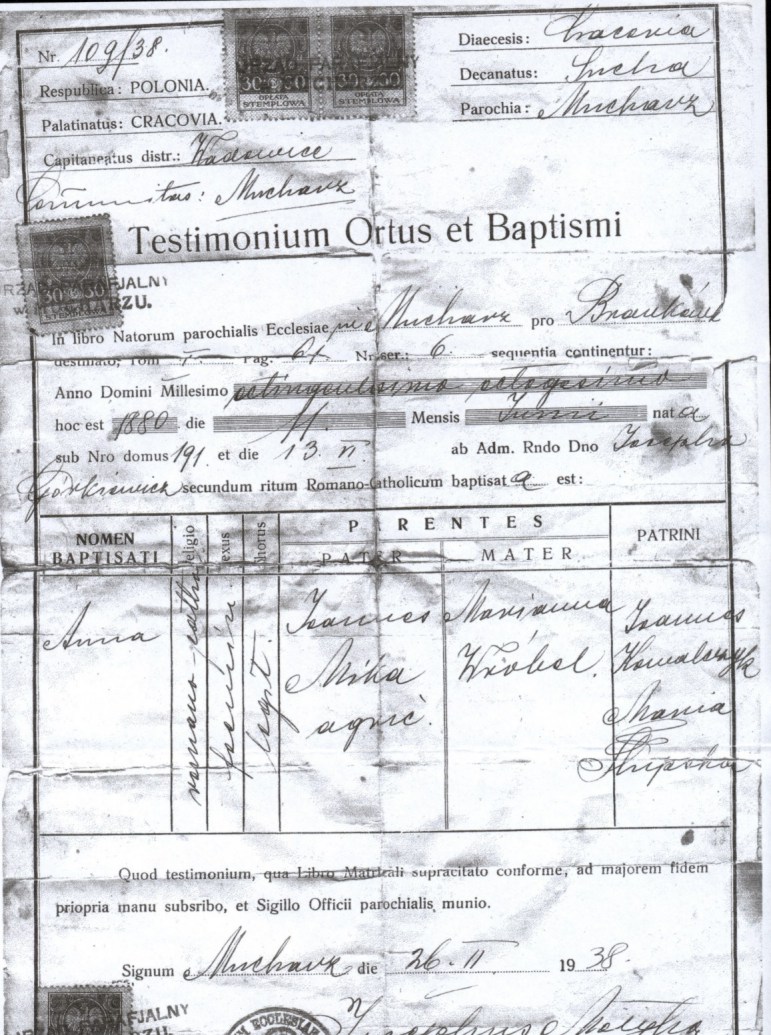 Nr. 109/38.
Respublica: POLONIA.
Palatinatus: CRACOVIA.
Capitaneatus distr.: Wadowice
Communitas: Mucharz
Diaecesis: Cracovia
Decanatus: Sucha
Parochia: Mucharz
30 30
OPŁATA
STEMPLOWA
30 30
OPŁATA
STEMPLOWA
URZĄD PARAFJALNY
Testimonium Ortus et Baptismi
30 30
STEMPLOWA
URZĄD PARAFJALNY
w MUCHARZU.
In libro Natorum parochialis Ecclesiae in Mucharz pro
destinato, Tom I. Pag. 61 Nr. ser.: 6. sequentia continentur:
Anno Domini Millesimo octingentesimo octogesimo
hoc est 1880 die 11. Mensis Junii nat a
sub Nro domus 191 et die 13. VI. ab Adm. Rndo Dno Josepho
Górkiewicz secundum ritum Romano-Catholicum baptisat a est:
NOMEN
BAPTISATI
Religio
Sexus
Thorus
PARENTES
PATER
MATER
PATRINI
Anna
romano-cath.
feminin.
legit.
Joannes
Mika
agric.
Marianna
Wróbel.
Joannes
Kowalczyk
Maria
Quod testimonium, qua Libro Matricali supracitato conforme, ad majorem fidem
priopria manu subsribo, et Sigillo Officii parochialis munio.
Signum Mucharz die 26. II. 1938.
PARAFJALNY
ECCLESIAE